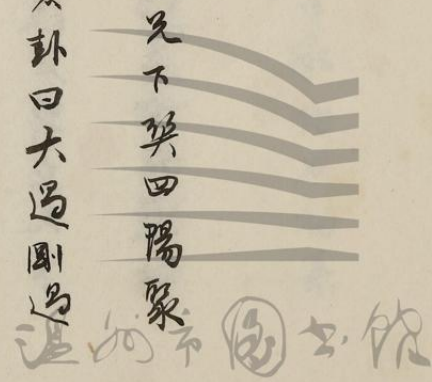 兑下巽四陽聚
卦曰大過剛過
温州市图书馆